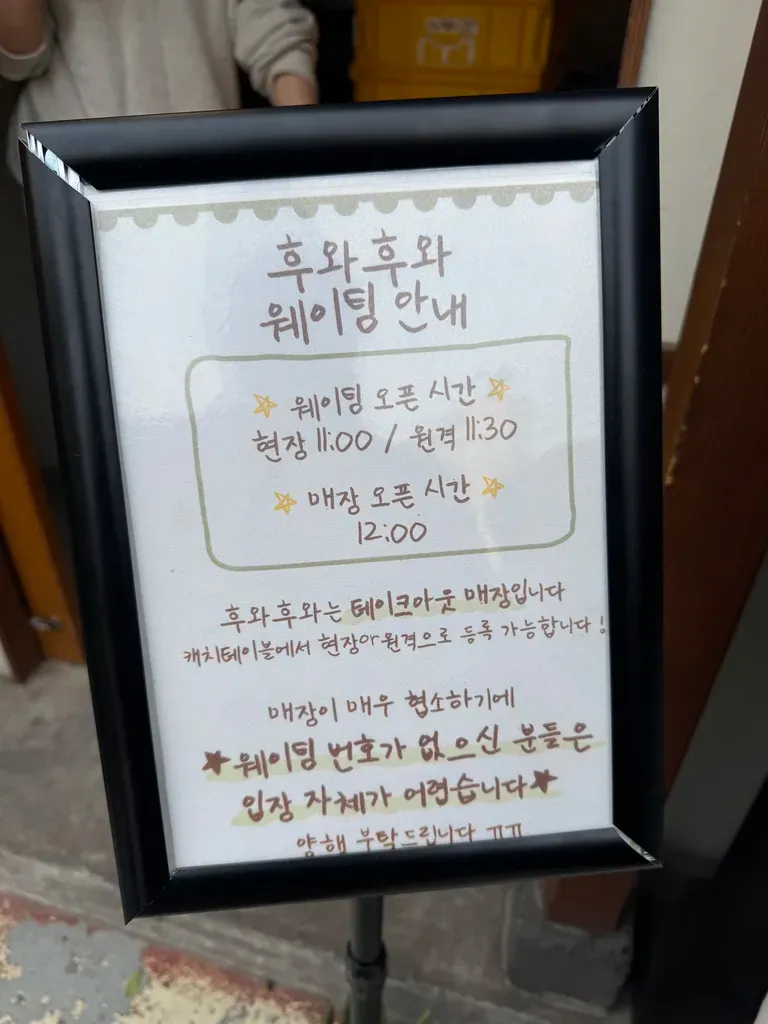 후와후와
웨이팅 안내
웨이팅 오픈 시간
현장 11:00 / 원격 11:30
매장 오픈 시간
12:00
후와후와는 테이크아웃 매장입니다
캐치테이블에서 현장과 원격으로 등록 가능합니다!
매장이 매우 협소하기에
★웨이팅 번호가 없으신 분들은
입장 자체가 어렵습니다★
양해 부탁드립니다 ㅠㅠ